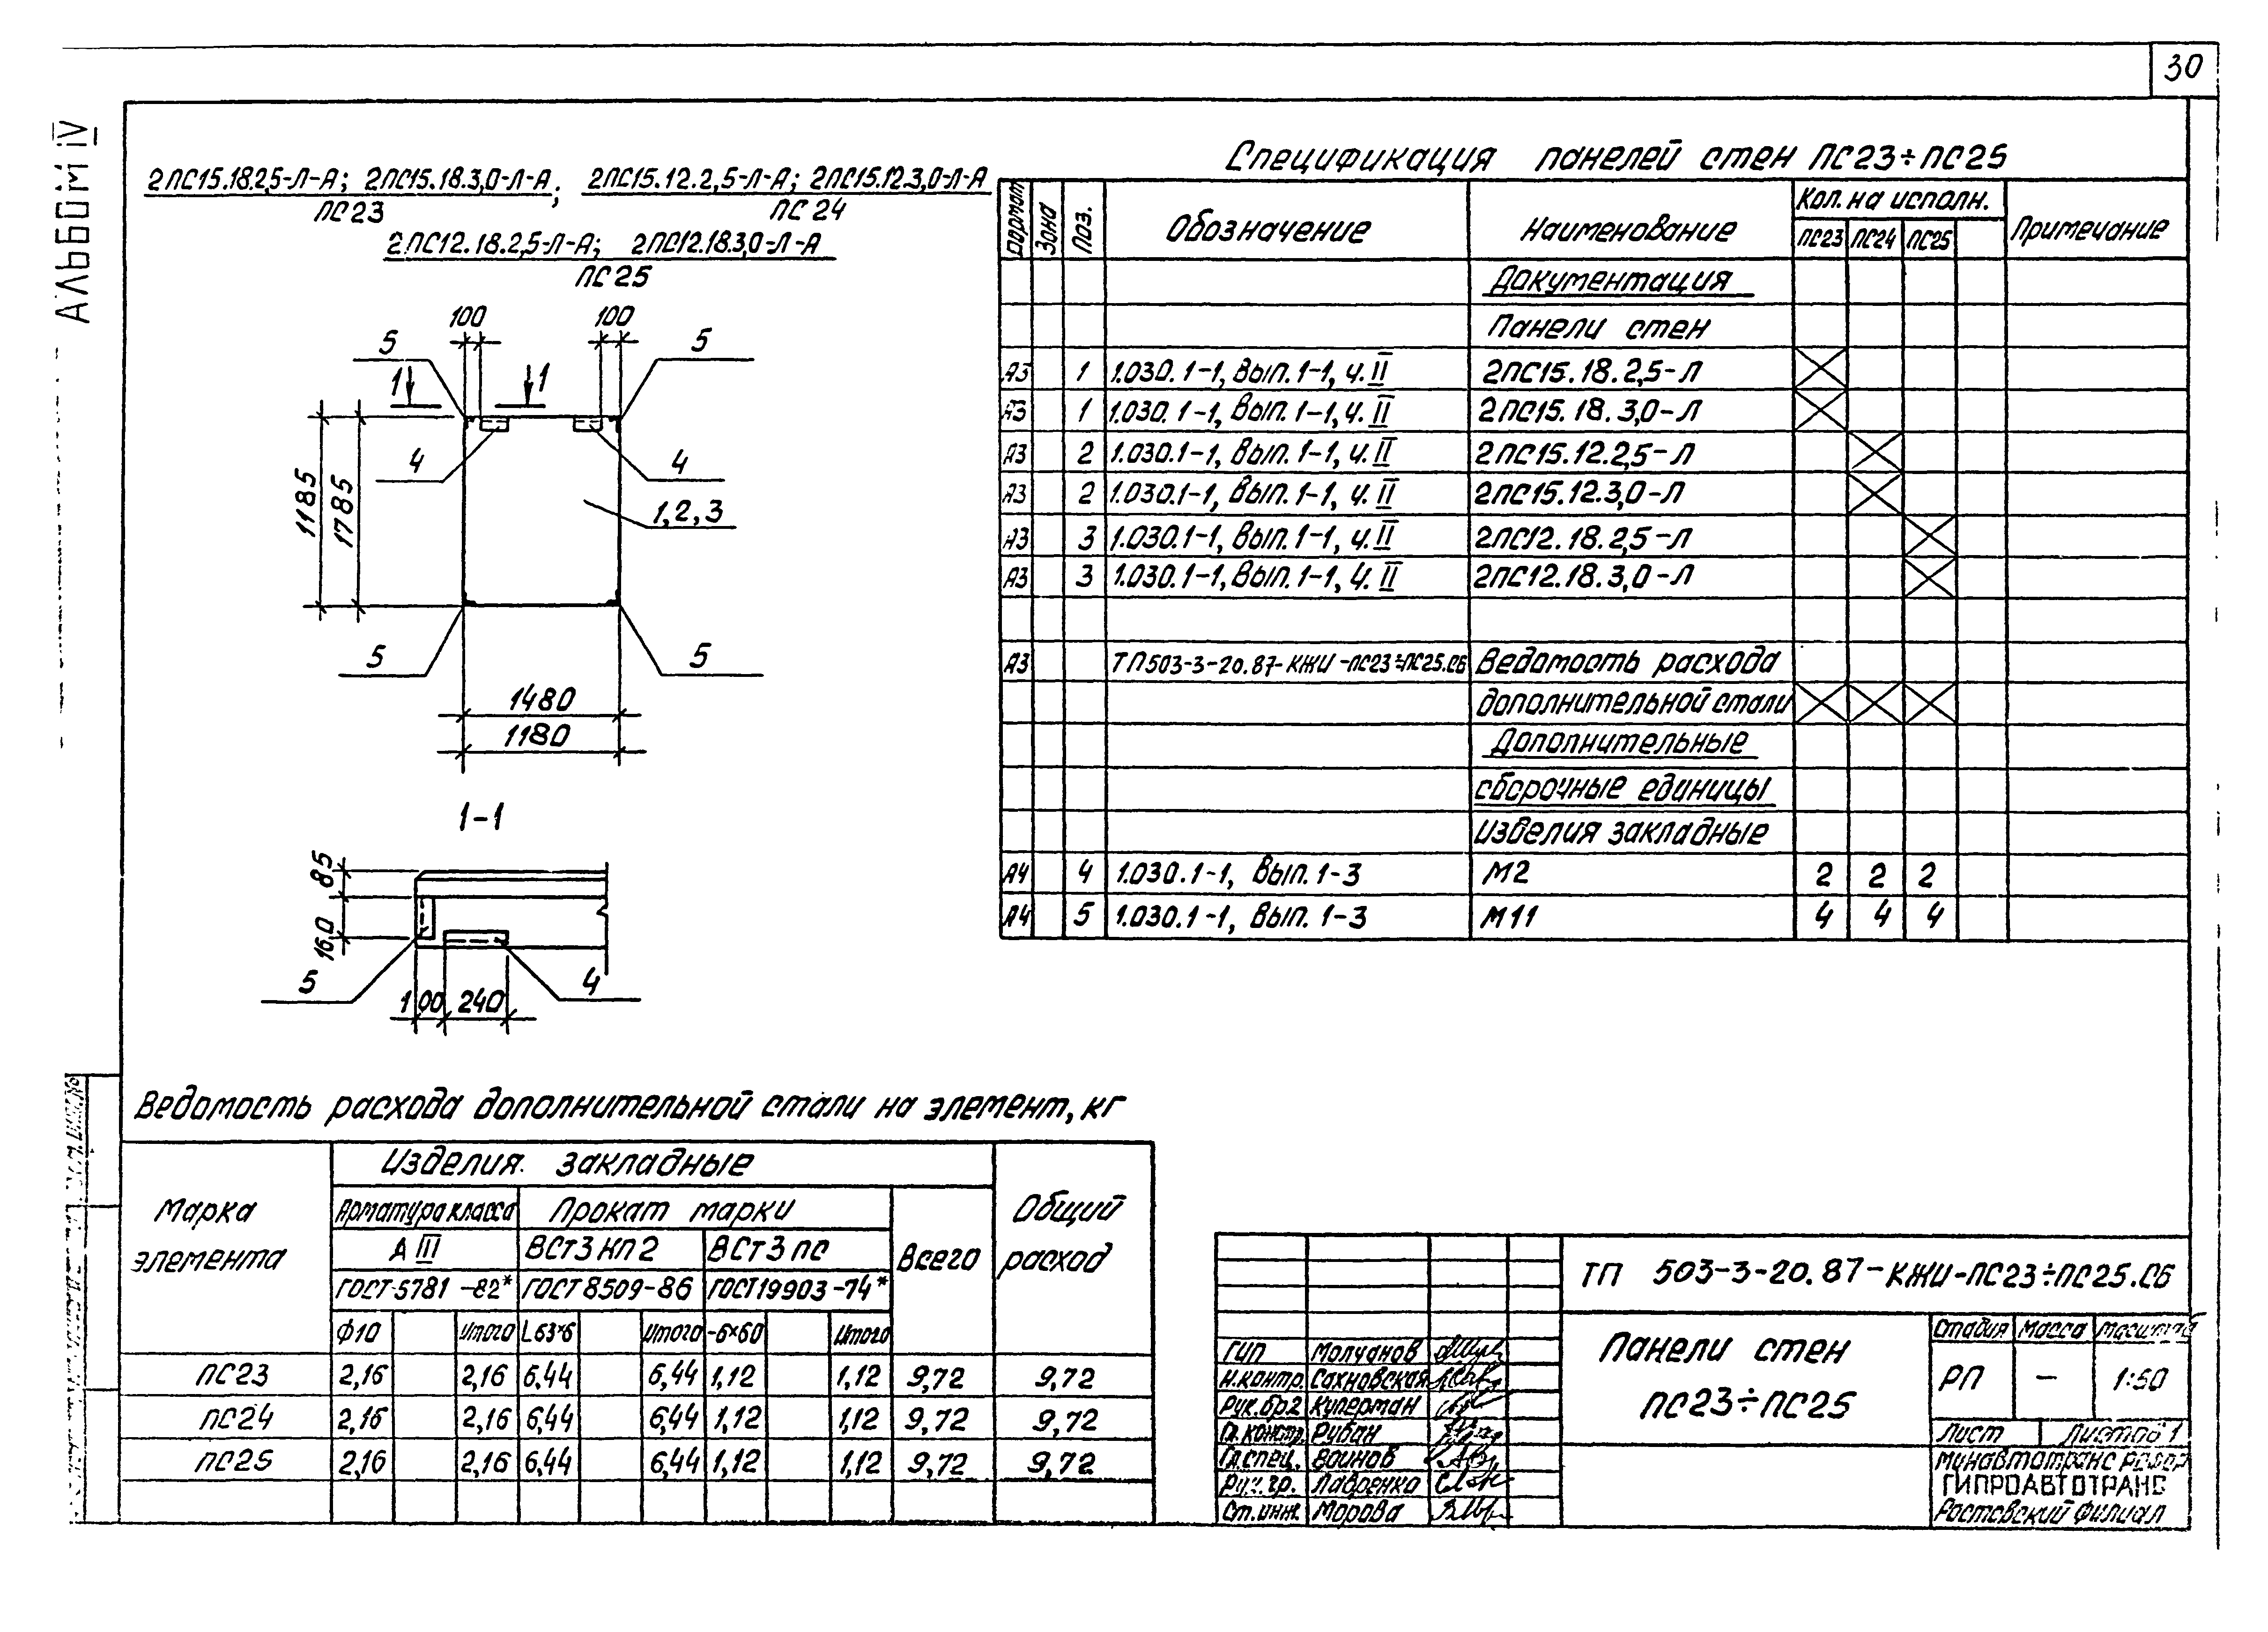 30
АЛЬБОМ IV
2ПС15.18.2,5-Л-А; 2ПС15.18.3,0-Л-А;
ПС23
2ПС15.12.2,5-Л-А; 2ПС15.12.3,0-Л-А
ПС24
2ПС12.18.2,5-Л-А; 2ПС12.18.3,0-Л-А
ПС25
100 100
5 5
1 1
4 4
1185 1785
1,2,3
5 5
1480
1180
1-1
85
160
5 4
100 240
Спецификация панелей стен ПС23÷ПС25
Формат Зона Поз. Обозначение Наименование Кол. на исполн. Примечание
ПС23 ПС24 ПС25
Документация
Панели стен
А3 1 1.030.1-1, Вып. 1-1, ч. II 2ПС15.18.2,5-Л
А3 1 1.030.1-1, Вып. 1-1, ч. II 2ПС15.18.3,0-Л
А3 2 1.030.1-1, Вып. 1-1, ч. II 2ПС15.12.2,5-Л
А3 2 1.030.1-1, Вып. 1-1, ч. II 2ПС15.12.3,0-Л
А3 3 1.030.1-1, Вып. 1-1, ч. II 2ПС12.18.2,5-Л
А3 3 1.030.1-1, Вып. 1-1, ч. II 2ПС12.18.3,0-Л
А3 ТП503-3-20.87-КЖИ-ПС23÷ПС25.СБ Ведомость расхода
дополнительной стали
Дополнительные
сборочные единицы
Изделия закладные
А4 4 1.030.1-1, Вып. 1-3 М2 2 2 2
А4 5 1.030.1-1, Вып. 1-3 М11 4 4 4
Ведомость расхода дополнительной стали на элемент, кг
Марка элемента
Изделия закладные
Общий расход
Арматура класса Прокат марки Всего
А III ВСт3кп2 ВСт3пс
ГОСТ 5781-82* ГОСТ 8509-86 ГОСТ 19903-74*
Ф10 Итого L63×6 Итого -6×60 Итого
ПС23 2,16 2,16 6,44 6,44 1,12 1,12 9,72 9,72
ПС24 2,16 2,16 6,44 6,44 1,12 1,12 9,72 9,72
ПС25 2,16 2,16 6,44 6,44 1,12 1,12 9,72 9,72
ТП 503-3-20.87-КЖИ-ПС23÷ПС25.СБ
Панели стен
ПС23÷ПС25
Стадия Масса Масштаб
РП - 1:50
Лист Листов 1
Минавтотранс РСФСР
ГИПРОАВТОТРАНС
Ростовский филиал
ГИП Молчанов
Н.контр. Сахновская
Рук.бр2 Куперман
Гл.констр. Рубан
Гл.спец. Воинов
Рук.гр. Лавренко
Ст.инж. Морова